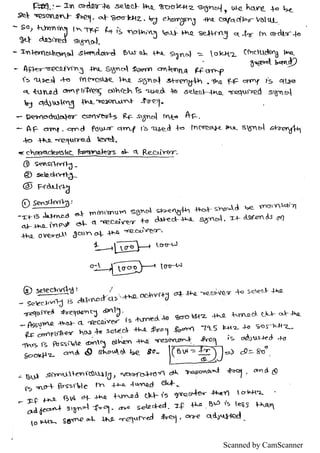 Ex:- In order to select the 800KHZ signal, we have to be
set resonant freq. at 800KHZ. by changing the capacitor value.
- So, tunning in TRF Rx is nothing but the setting a fr in order to
get desired signal.
- International standard BW of the signal = 10KHZ (including the
guard band)
- After receiving the signal from antenna RF amp
is used to increase the signal strength. The RF amp is also
a tuned amplifier, which is used to select the required signal
by adjusting the resonant freq.
- Demodulator converts RF signal into AF.
- AF amp. and power amp is used to increase the signal strength
to the required level.
* characteristic parameters of a Receiver:
① Sensitivity.
② Selectivity.
③ Fedility
① Sensitivity:
- It is defined at minimum signal strength that should be maintain
at the input of a receiver to detect the signal. It depends on
the overall gain of the receiver.
1 → 100 → 100W
0.1 → 1000 → 100W
② Selectivity:
- Selectivity is defined as the activity of the receiver to select the
required frequency only.
- Assume that a receiver is tuned to 800KHZ the tuned ckt at the
RF amplifier has to select the freq from 795 KHZ to 805 KHZ.
This is possible only when the resonant freq is adjusted to
800KHZ and Q should be 80. BW = fr/Q => Q = 80
- But simultaneously, variation of resonant freq. and Q
is not possible in the tuned ckt.
- If the BW of the tuned ckt is greater then 10KHZ
adjacent signal freq. are selected. If the BW is less than
10 KHZ some of the required freq. are adjusted.
Scanned by CamScanner